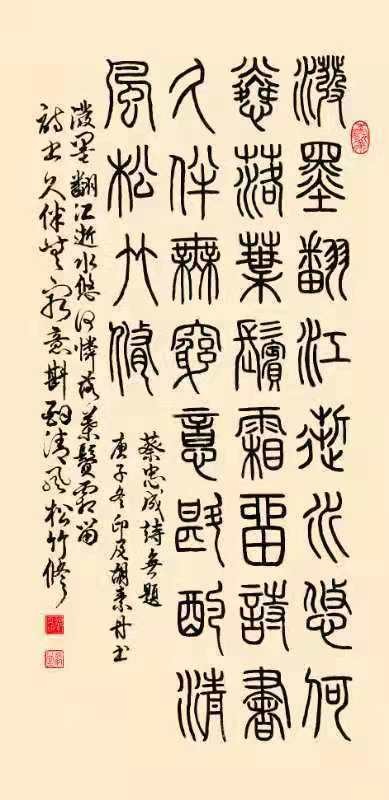 潑墨翻江逝水悠何
憐落葉鬢霜留詩書
久伴無窮意斟酌清
風松竹修
蔡忠成詩無題
庚子冬胡丹书
潑墨翻江逝水悠何憐落葉鬢霜留
詩书久伴無窮意斟酌清風松竹修